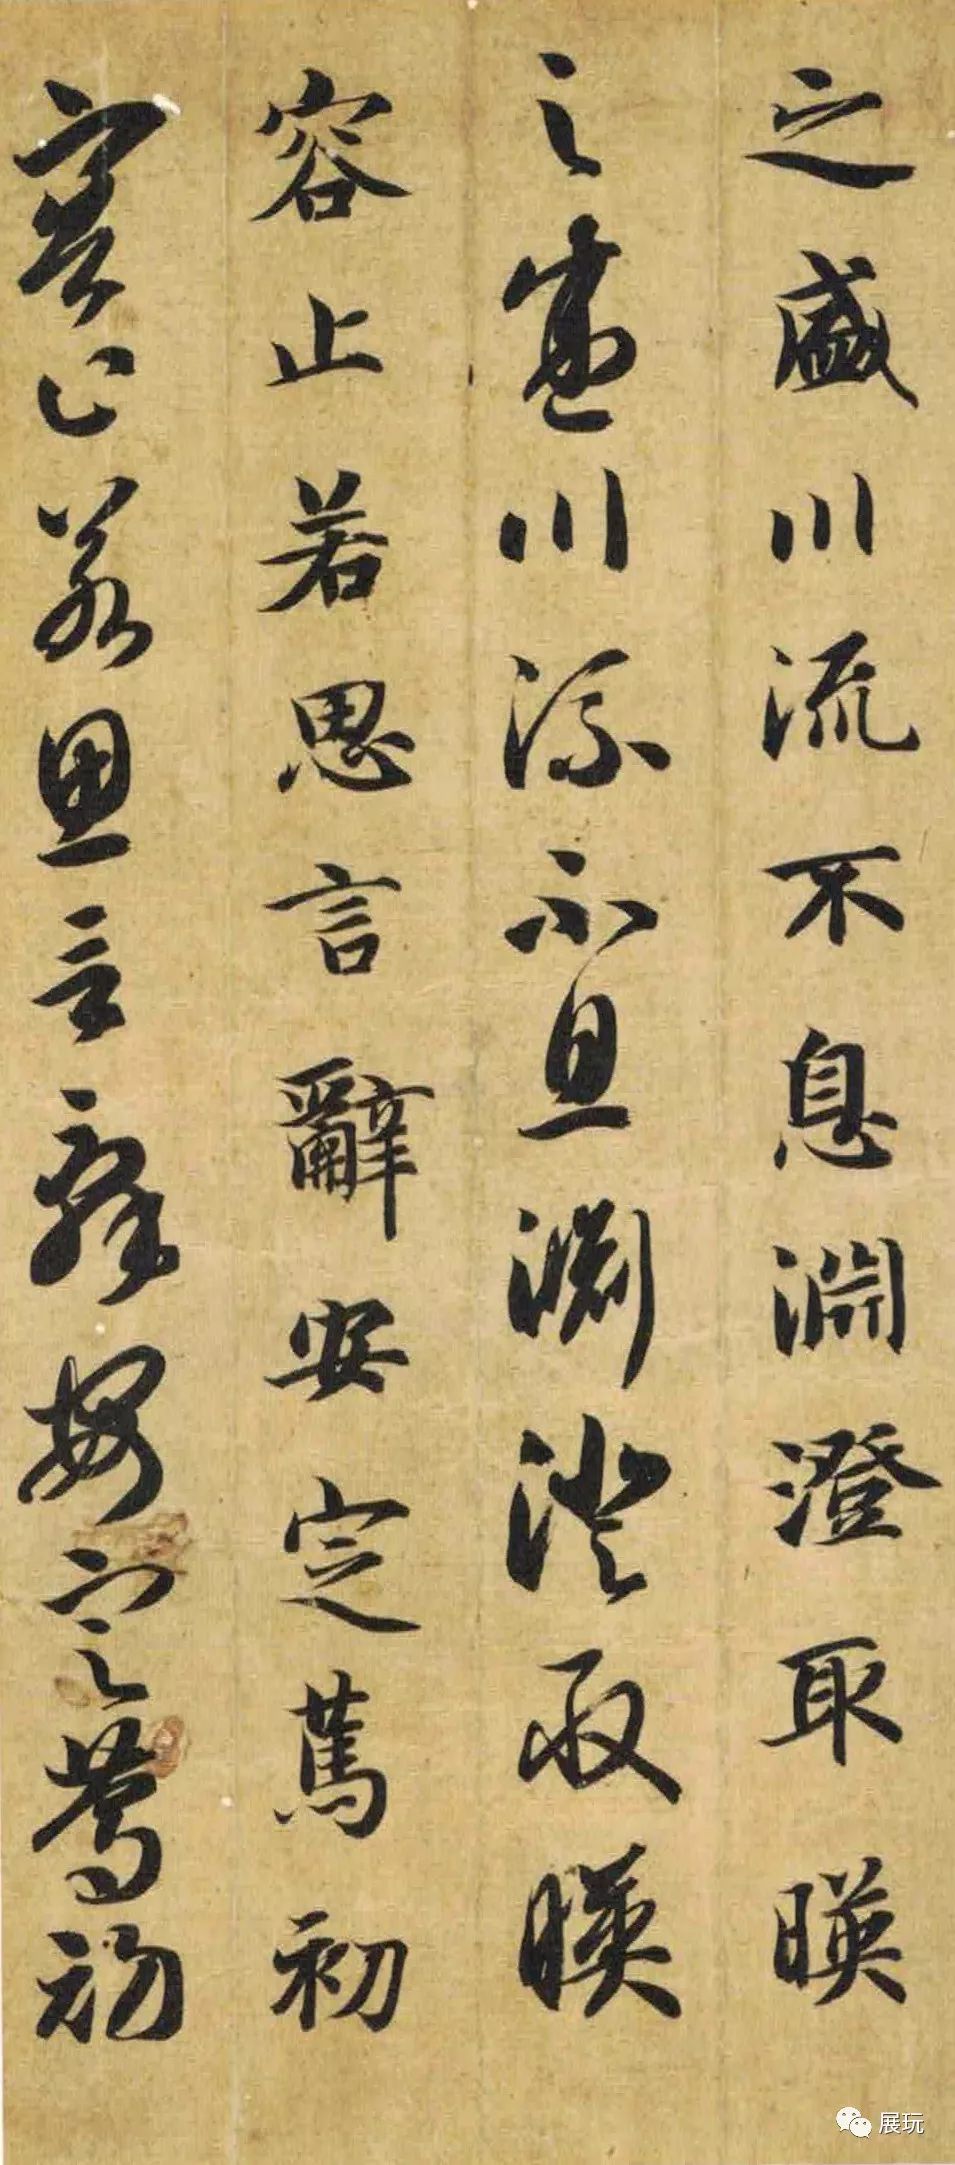 之盛川流不息淵澄取暎
之盛川流不息淵澄取暎
容止若思言辭安定篤初
容止若思言辭安定篤初
展玩